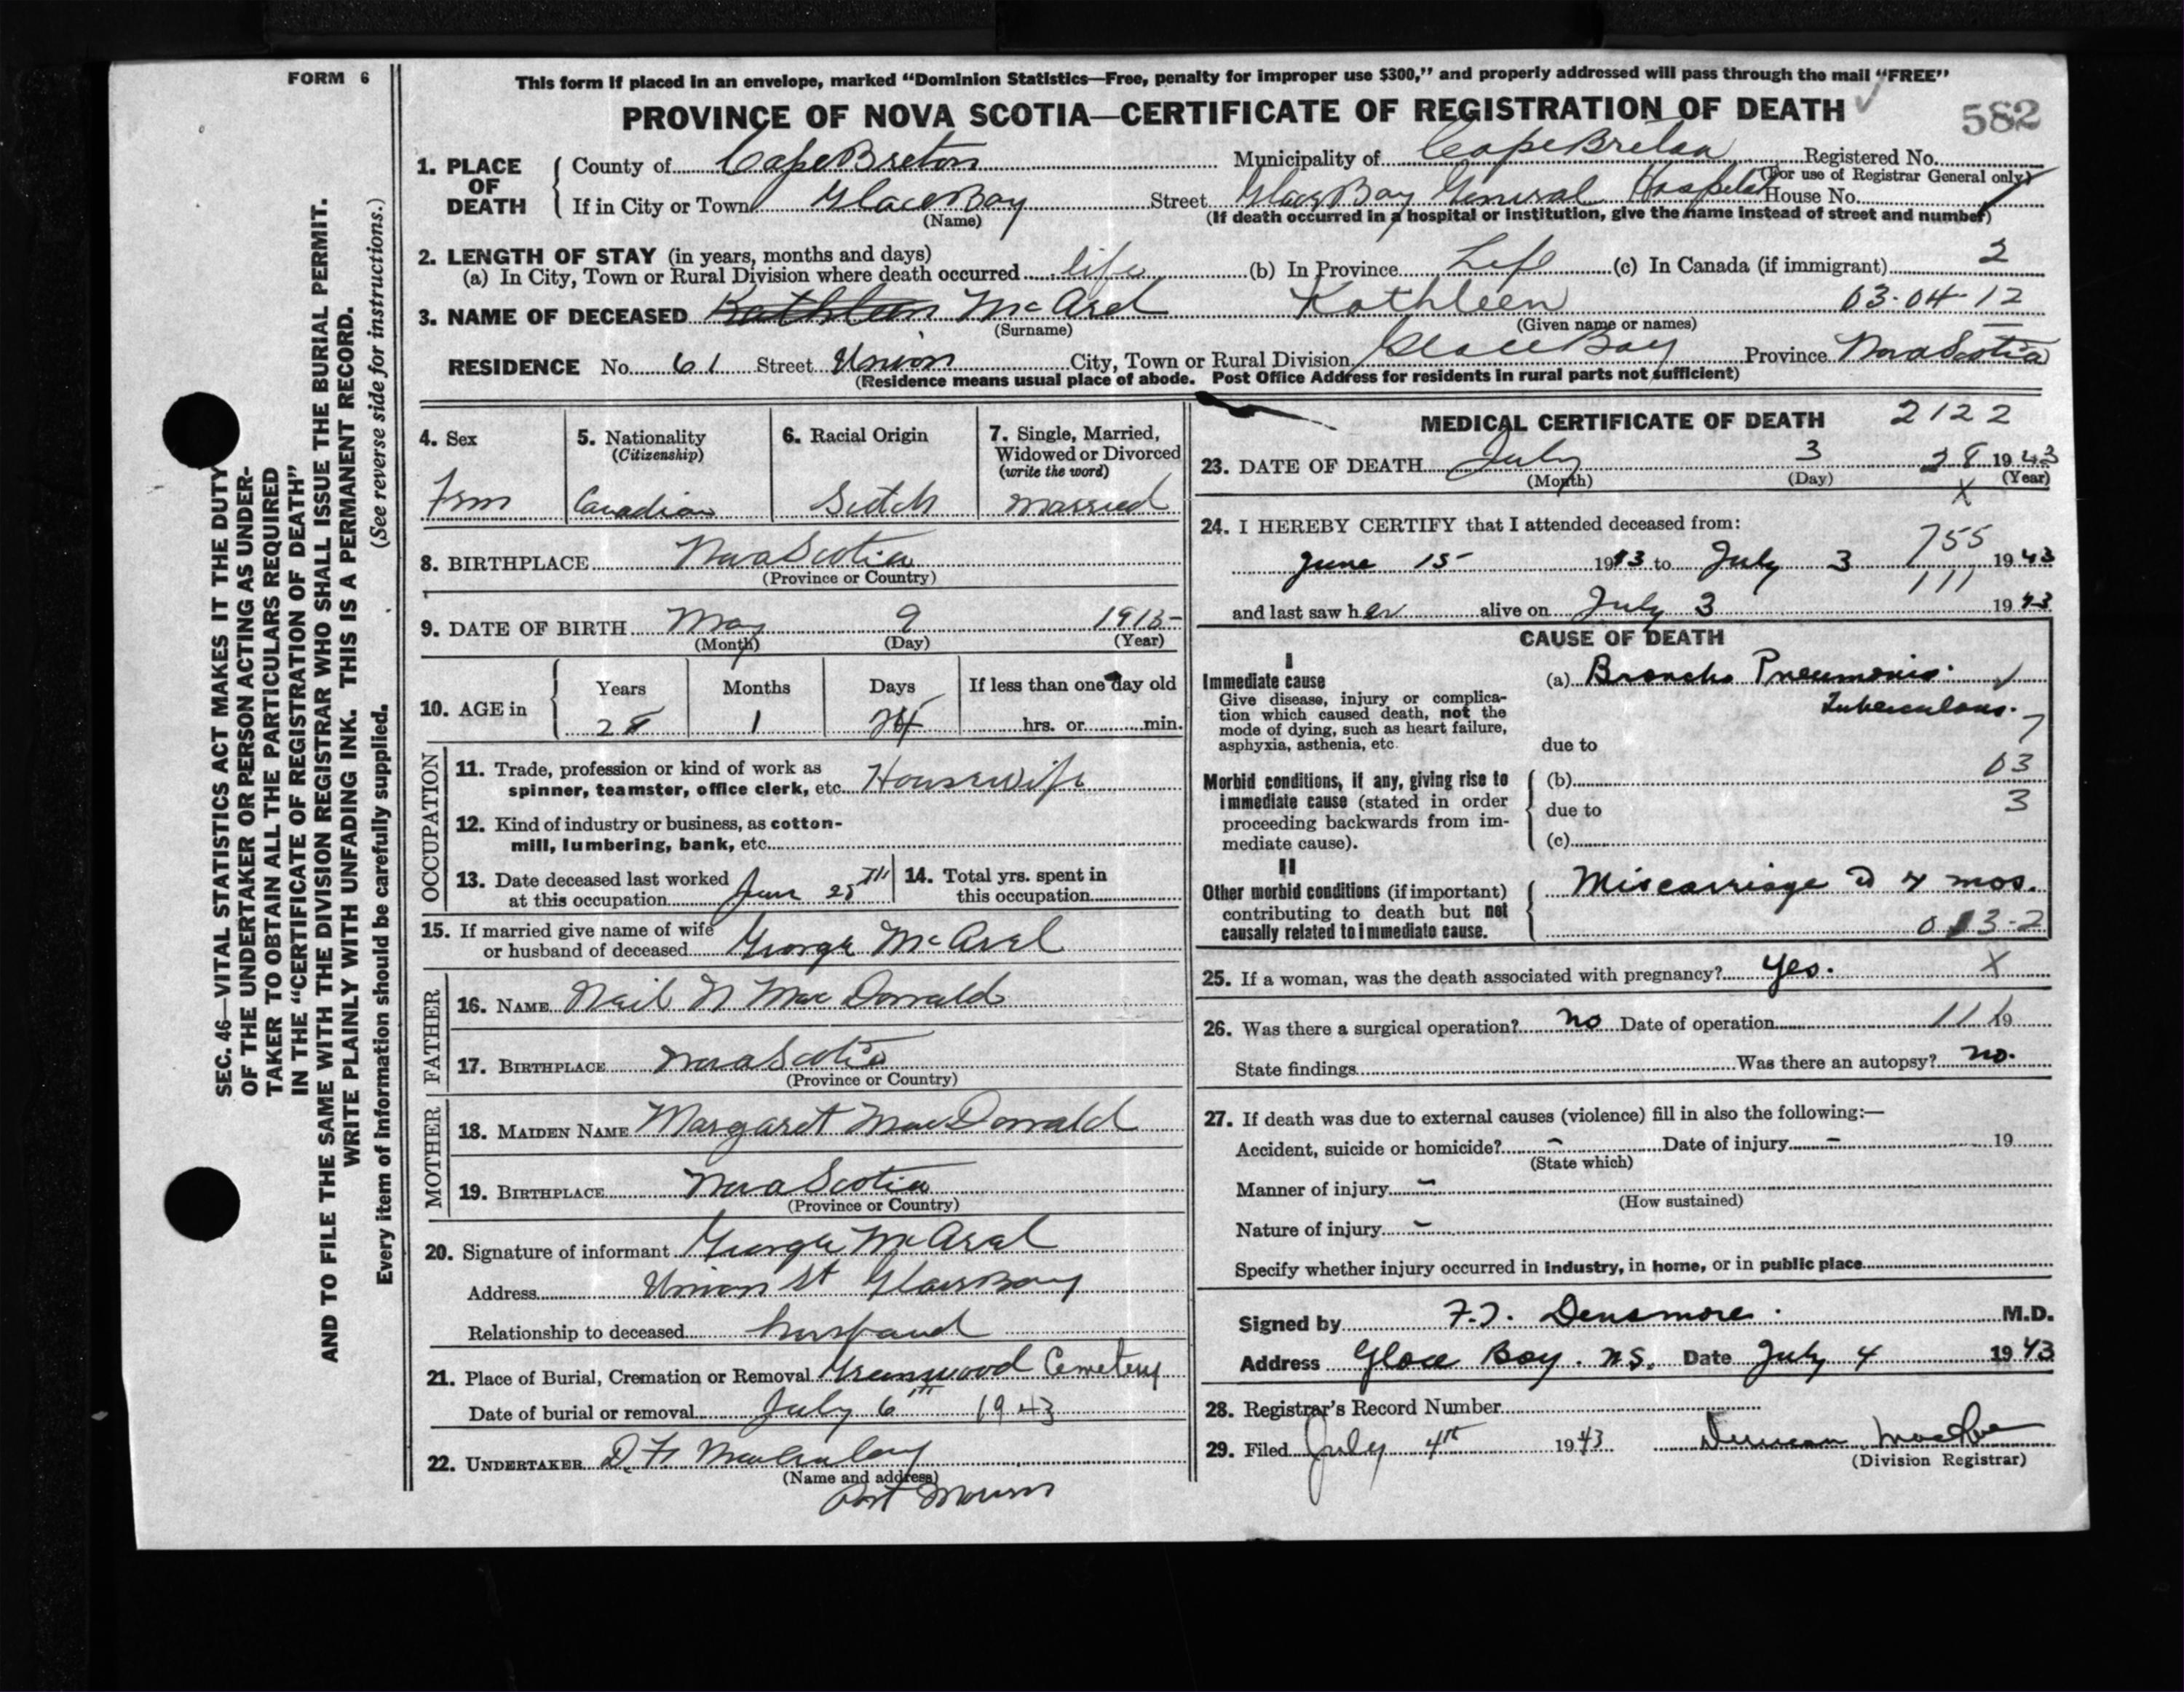 FORM 6
This form if placed in an envelope, marked “Dominion Statistics—Free, penalty for improper use $300,” and properly addressed will pass through the mail “FREE”
PROVINCE OF NOVA SCOTIA—CERTIFICATE OF REGISTRATION OF DEATH
582
1. PLACE OF DEATH
County of Cape Breton Municipality of Cape Breton Registered No.
(For use of Registrar General only)
If in City or Town Glace Bay Street Glace Bay General Hospital House No.
(Name) (If death occurred in a hospital or institution, give the name instead of street and number)
2. LENGTH OF STAY (in years, months and days)
(a) In City, Town or Rural Division where death occurred life (b) In Province Life (c) In Canada (if immigrant) 2
3. NAME OF DECEASED Kathleen McAsel Kathleen 03-04-12
(Surname) (Given name or names)
RESIDENCE No. 61 Street Union City, Town or Rural Division Glace Bay Province Nova Scotia
(Residence means usual place of abode. Post Office Address for residents in rural parts not sufficient)
4. Sex
Fem
5. Nationality
(Citizenship)
Canadian
6. Racial Origin
Scotch
7. Single, Married,
Widowed or Divorced
(write the word)
married
8. BIRTHPLACE Nova Scotia
(Province or Country)
9. DATE OF BIRTH May 9 1915
(Month) (Day) (Year)
10. AGE in
Years Months Days If less than one day old
28 1 24 hrs. or min.
OCCUPATION
11. Trade, profession or kind of work as
spinner, teamster, office clerk, etc. Housewife
12. Kind of industry or business, as cotton-
mill, lumbering, bank, etc.
13. Date deceased last worked
at this occupation June 25TH
14. Total yrs. spent in
this occupation
15. If married give name of wife
or husband of deceased George McAsel
FATHER
16. NAME Neil N MacDonald
17. BIRTHPLACE Nova Scotia
(Province or Country)
MOTHER
18. MAIDEN NAME Margaret MacDonald
19. BIRTHPLACE Nova Scotia
(Province or Country)
20. Signature of informant George McAsel
Address Union St Glace Bay
Relationship to deceased husband
21. Place of Burial, Cremation or Removal Greenwood Cemetery
Date of burial or removal July 6th 1943
22. UNDERTAKER D. F.
(Name and address)
Port Morien
MEDICAL CERTIFICATE OF DEATH 2122
23. DATE OF DEATH July 3 28 1943
(Month) (Day) (Year)
X
24. I HEREBY CERTIFY that I attended deceased from:
755
June 15 1943 to July 3 1943
111
and last saw her alive on July 3 1943
CAUSE OF DEATH
I
Immediate cause
Give disease, injury or complica-
tion which caused death, not the
mode of dying, such as heart failure,
asphyxia, asthenia, etc.
(a) Broncho Pneumonia
Tuberculous.
7
due to
Morbid conditions, if any, giving rise to
immediate cause (stated in order
proceeding backwards from im-
mediate cause).
(b) 03
due to 3
(c)
II
Other morbid conditions (if important)
contributing to death but not
causally related to immediate cause.
Miscarriage 4 mos.
013-2
25. If a woman, was the death associated with pregnancy? Yes. X
26. Was there a surgical operation? no Date of operation 11 19
State findings Was there an autopsy? no.
27. If death was due to external causes (violence) fill in also the following:—
Accident, suicide or homicide? – Date of injury – 19
(State which)
Manner of injury –
(How sustained)
Nature of injury –
Specify whether injury occurred in industry, in home, or in public place
Signed by F.T. Densmore M.D.
Address Glace Bay. N.S. Date July 4 1943
28. Registrar's Record Number
29. Filed July 4th 1943 Duncan
(Division Registrar)
SEC. 46—VITAL STATISTICS ACT MAKES IT THE DUTY
OF THE UNDERTAKER OR PERSON ACTING AS UNDER-
TAKER TO OBTAIN ALL THE PARTICULARS REQUIRED
IN THE “CERTIFICATE OF REGISTRATION OF DEATH”
AND TO FILE THE SAME WITH THE DIVISION REGISTRAR WHO SHALL ISSUE THE BURIAL PERMIT.
WRITE PLAINLY WITH UNFADING INK. THIS IS A PERMANENT RECORD.
Every item of information should be carefully supplied. (See reverse side for instructions.)